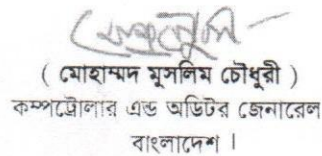 ( মোহাম্মদ মুসলিম চৌধুরী )
কম্পট্রোলার এন্ড অডিটর জেনারেল
বাংলাদেশ ।